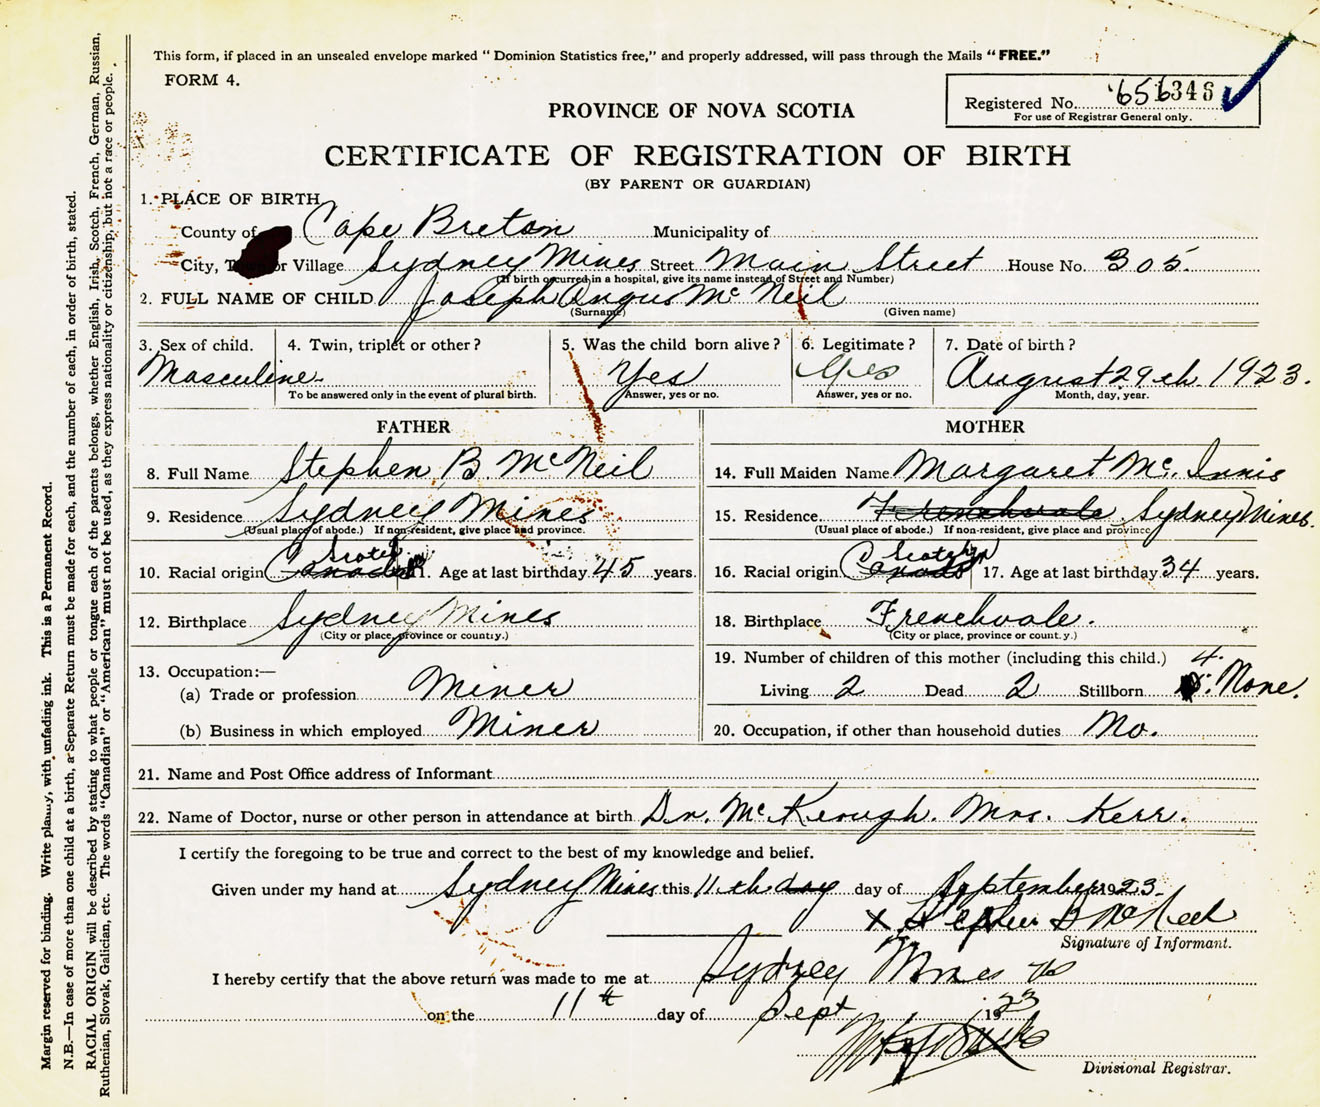 This form, if placed in an unsealed envelope marked "Dominion Statistics free," and properly addressed, will pass through the Mails "FREE."
FORM 4.
Registered No. 656346
For use of Registrar General only.
PROVINCE OF NOVA SCOTIA
CERTIFICATE OF REGISTRATION OF BIRTH
(BY PARENT OR GUARDIAN)
1. PLACE OF BIRTH
County of Cape Breton Municipality of
City, or Village Sydney Mines Street Main Street House No. 305.
(If birth occurred in a hospital, give its name instead of Street and Number)
2. FULL NAME OF CHILD Joseph Angus Mc Neil
(Surname) (Given name)
3. Sex of child. 4. Twin, triplet or other? 5. Was the child born alive? 6. Legitimate? 7. Date of birth?
Masculine. Yes Yes August 29th. 1923.
To be answered only in the event of plural birth. Answer, yes or no. Answer, yes or no. Month, day, year.
FATHER MOTHER
8. Full Name Stephen B McNeil 14. Full Maiden Name Margaret Mc. Innis
9. Residence Sydney Mines 15. Residence Frenchvale Sydney Mines.
(Usual place of abode.) If non-resident, give place and province. (Usual place of abode.) If non-resident, give place and province
Scotch Scotch
10. Racial origin 11. Age at last birthday 45 years. 16. Racial origin 17. Age at last birthday 34 years.
12. Birthplace Sydney Mines 18. Birthplace Frenchvale.
(City or place, province or country.) (City or place, province or country.)
13. Occupation:— 19. Number of children of this mother (including this child.) 4.
(a) Trade or profession Miner Living 2 Dead 2 Stillborn None.
(b) Business in which employed Miner 20. Occupation, if other than household duties No.
21. Name and Post Office address of Informant
22. Name of Doctor, nurse or other person in attendance at birth Dr. McKeough. Mrs. Kerr.
I certify the foregoing to be true and correct to the best of my knowledge and belief.
Given under my hand at Sydney Mines this 11th day day of September 1923.
X Stephen B McNeil
Signature of Informant.
I hereby certify that the above return was made to me at Sydney Mines
on the 11th day of Sept 1923
Divisional Registrar.
Margin reserved for binding. Write plainly, with unfading ink. This is a Permanent Record.
N.B.—In case of more than one child at a birth, a Separate Return must be made for each, and the number of each, in order of birth, stated.
RACIAL ORIGIN will be described by stating to what people or tongue each of the parents belongs, whether English, Irish, Scotch, French, German, Russian,
Ruthenian, Slovak, Galician, etc. The words "Canadian" or "American" must not be used, as they express nationality or citizenship, but not a race or people.